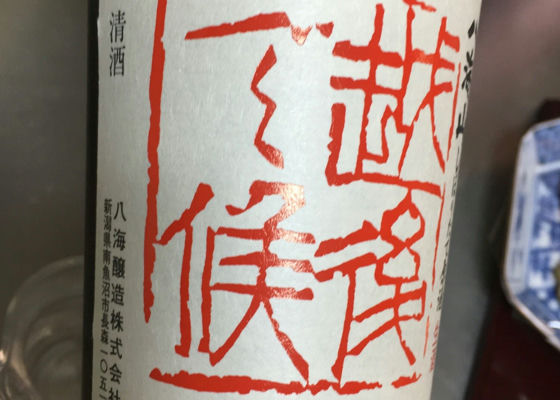 越後
で候
清酒
八海醸造株式会社
新潟県南魚沼市長森一〇五一